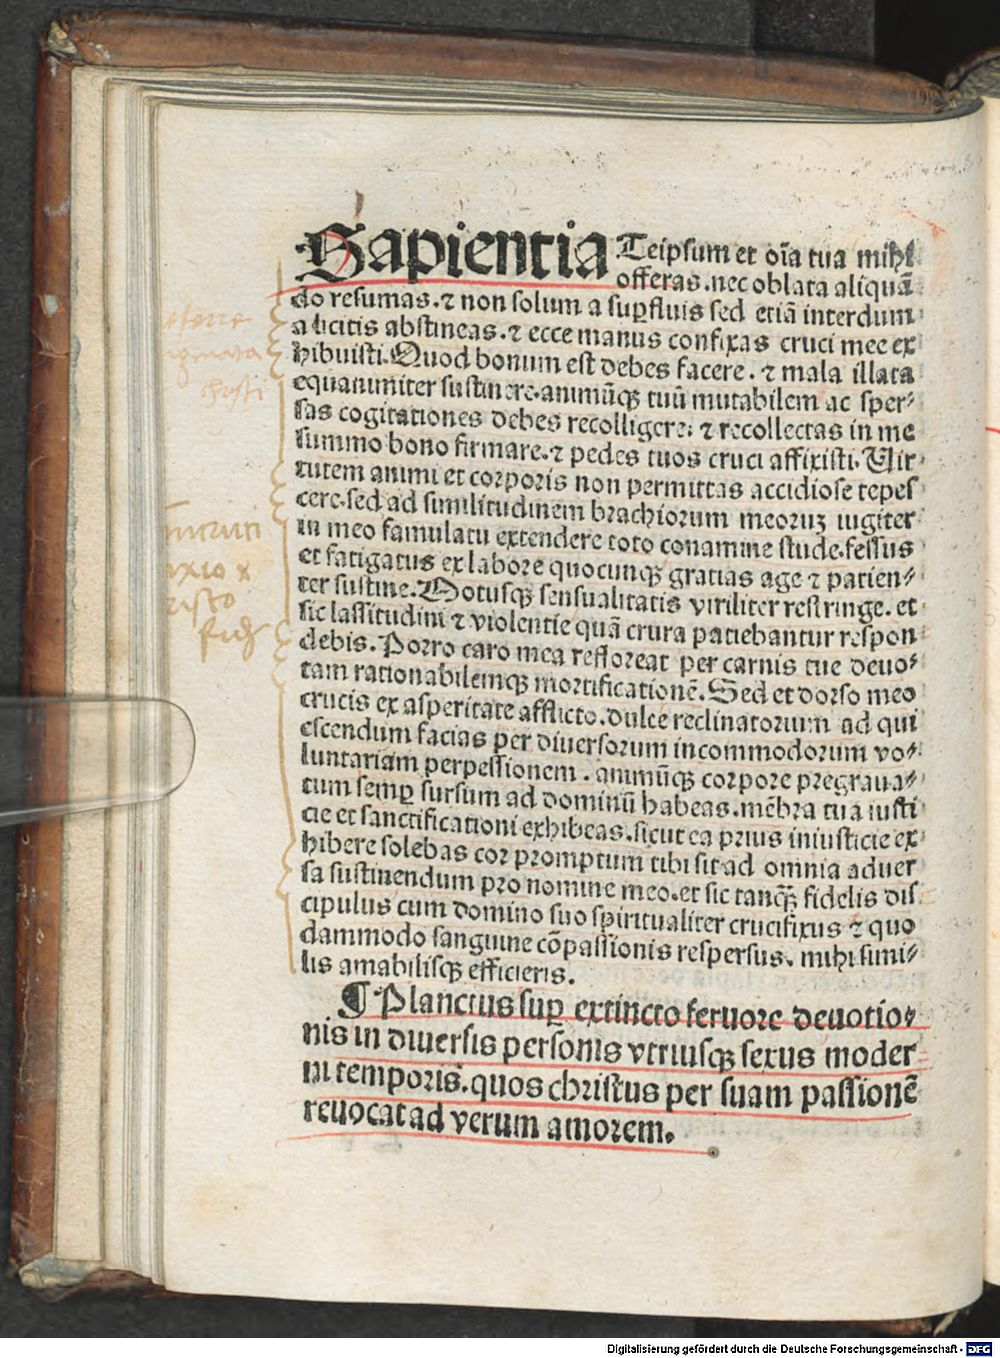 Sapientia Teipsum et oīa tua mihi
offeras.nec oblata aliquā
do resumas.⁊ non solum a suꝑfluis sed etiā interdum
a licitis abstineas.⁊ ecce manus confixas cruci mee ex
hibuisti.Quod bonum est debes facere.⁊ mala illata
equanimiter sustinere.animūqꝫ tuū mutabilem ac sper⸗
sas cogitationes debes recolligere: ⁊ recollectas in me
summo bono firmare.⁊ pedes tuos cruci affixisti.Uir
tutem animi et corporis non permittas accidiose tepes
cere.sed ad similitudinem brachiorum meoruꝫ iugiter
in meo famulatu extendere toto conamine stude.fessus
et fatigatus ex labore quocunqꝫ gratias age ⁊ patien⸗
ter sustine.Motusqꝫ sensualitatis viriliter restringe.et
sic lassitudini ⁊ violentie quā crura patiebantur respon
debis.Porro caro mea refloreat per carnis tue deuo⸗
tam rationabilemqꝫ mortificationē.Sed et dorso meo
crucis ex asperitate afflicto.dulce reclinatorium ad qui
escendum facias per diuersorum incommodorum vo⸗
luntariam perpessionem.animūqꝫ corpore pregraua⸗
tum semꝑ sursum ad dominū habeas.mēbra tua iusti
cie et sanctificationi exhibeas.sicut ea prius iniusticie ex
hibere solebas cor promptum tibi sit ad omnia aduer
sa sustinendum pro nomine meo.et sic tanqꝫ fidelis dis
cipulus cum domino suo spiritualiter crucifixus ⁊ quo
dammodo sanguine cōpassionis respersus.mihi simi⸗
lis amabilisqꝫ efficieris.
¶ Planctus suꝑ extincto feruore deuotio⸗
nis in diuersis personis vtriusqꝫ sexus moder
ni temporis.quos christus per suam passionē
reuocat ad verum amorem.
Digitalisierung gefördert durch die Deutsche Forschungsgemeinschaft - DFG